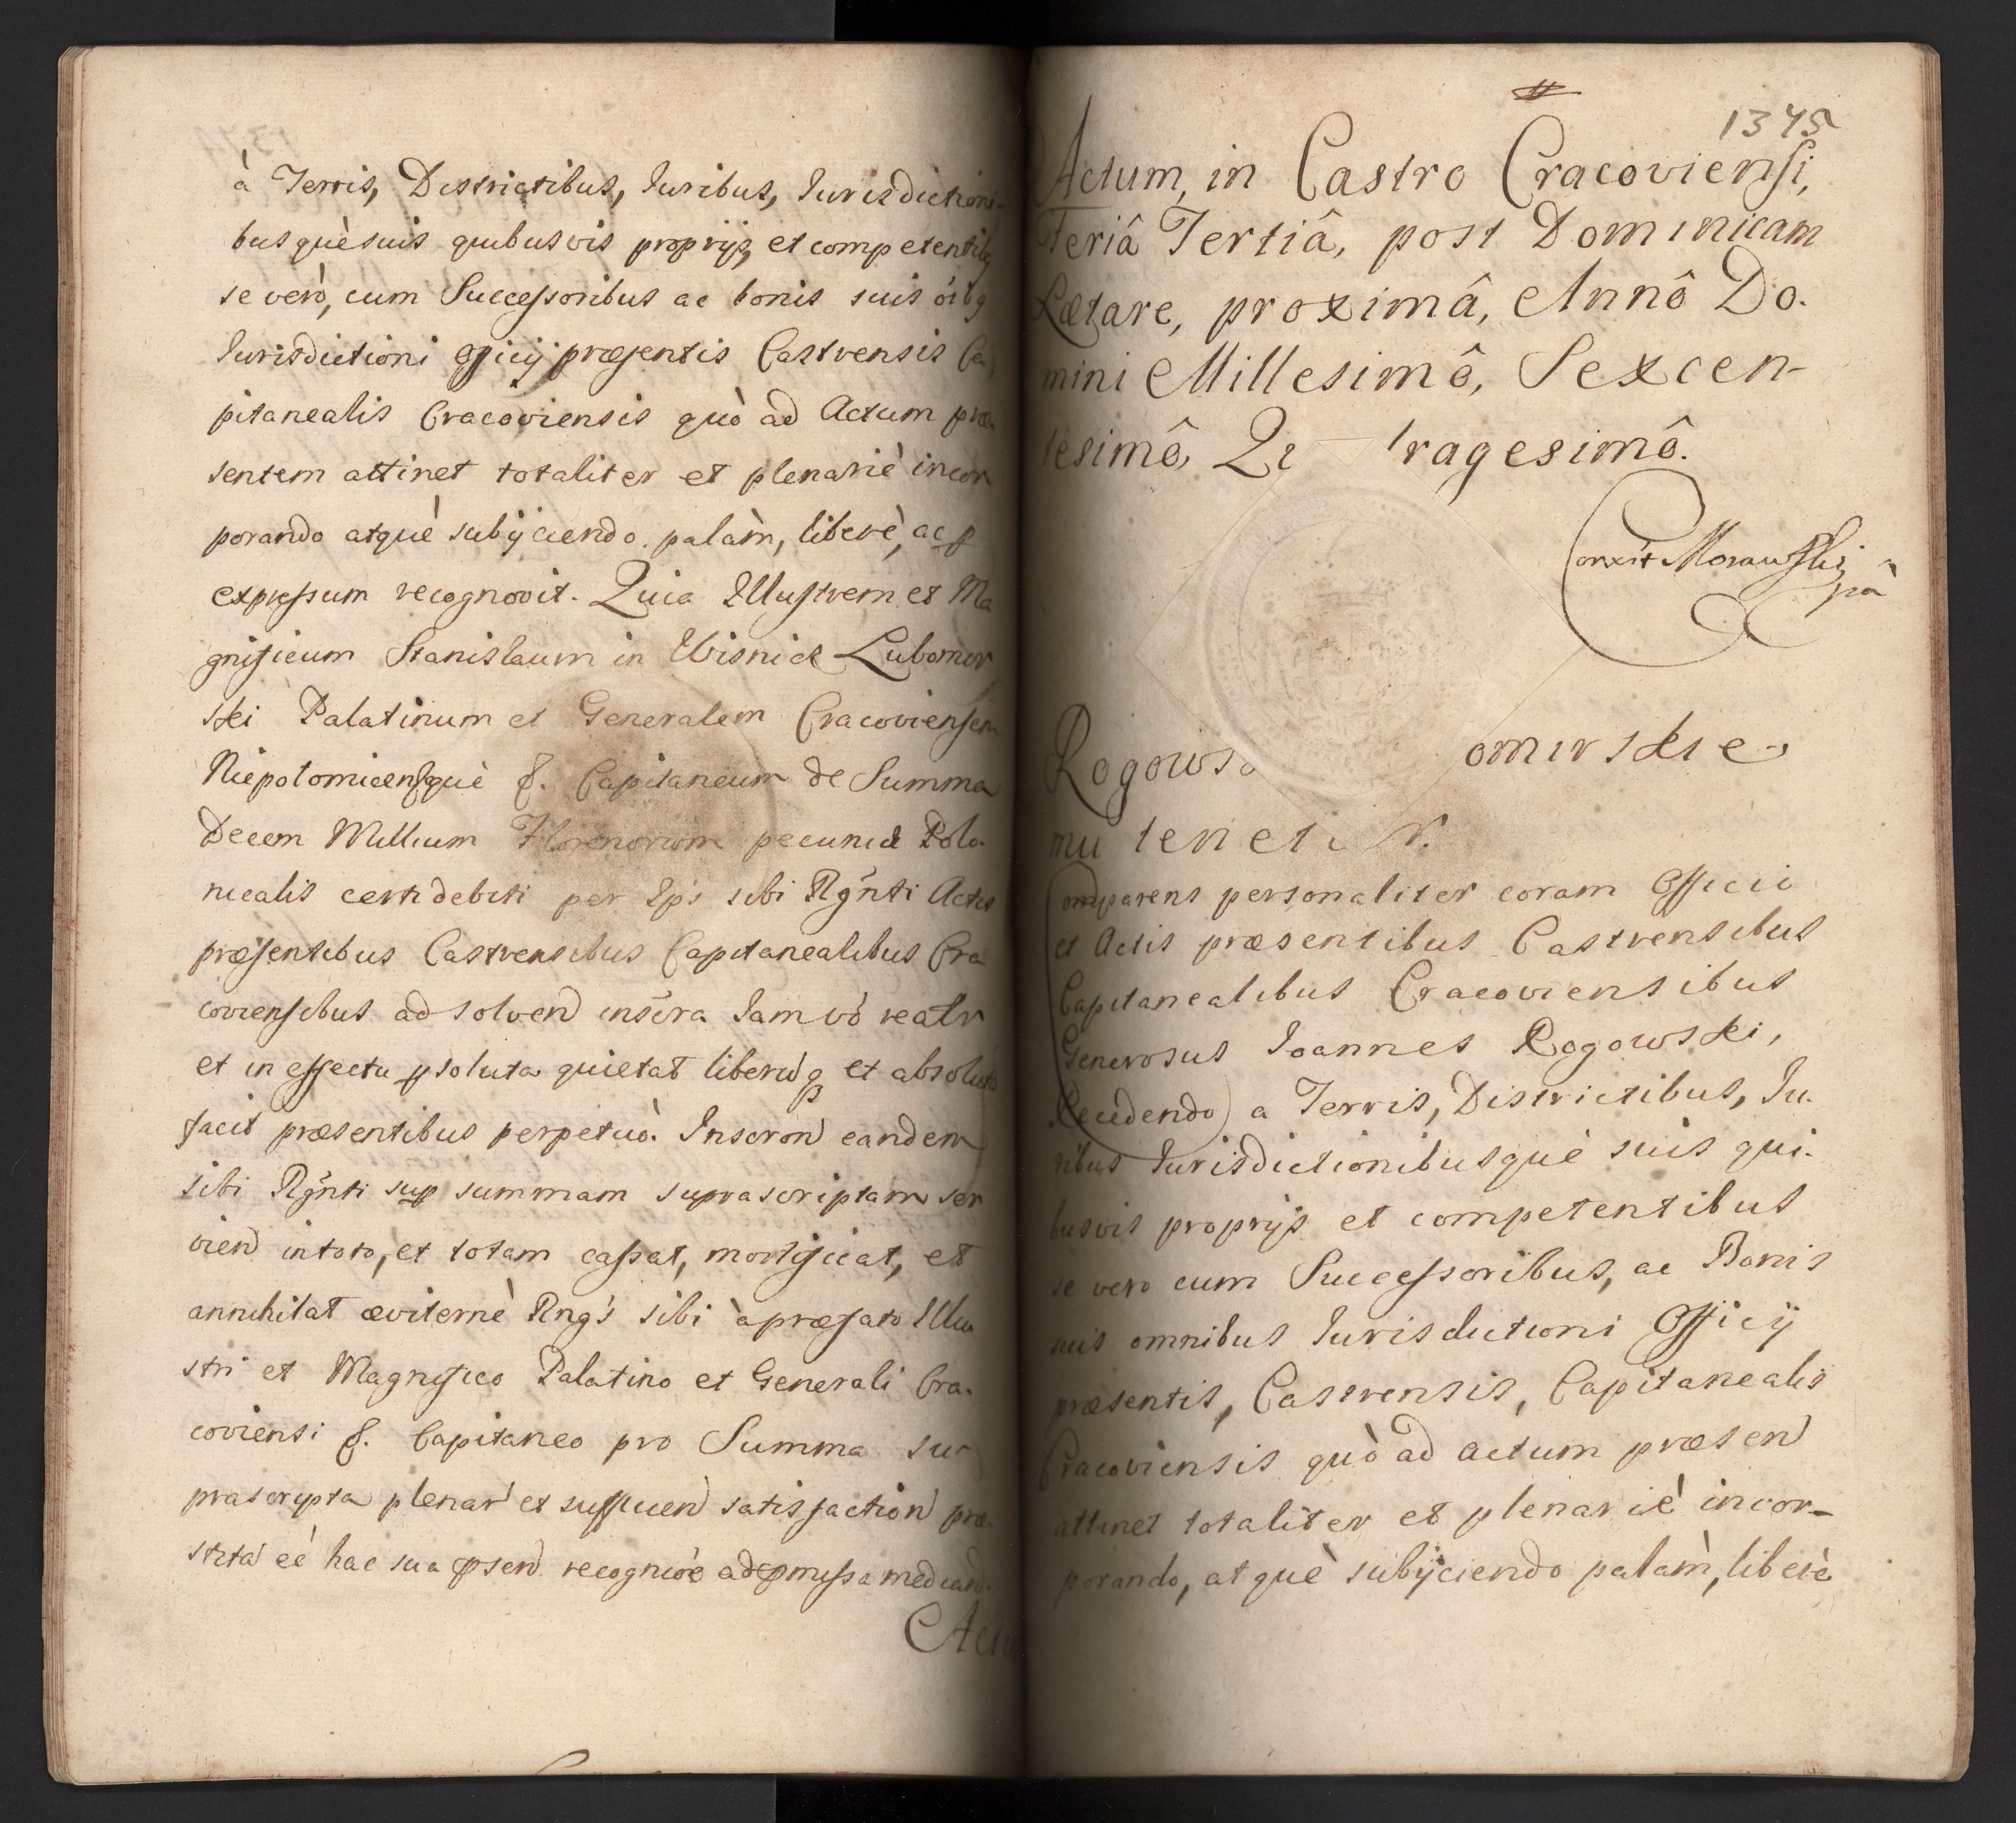 à Terris, Districtibus, Iuribus, Iurisdictioni-
busquè suis quibusvis proprijs, et competentibq
se verò, cum Successoribus ac bonis suis oibq
Iurisdictioni Officij præsentis Castrensis Ca
pitanealis Cracoviensis quò ad Actum præ
sentem attinet totaliter et plenariè incor
porando atquè subijciendo palàm, liberè, ac p
expressum recognovit. Quia Illustrem et Ma
gnificum Stanislaum in Wisnicz Lubomir
ski Palatinum et Generalem Cracoviensem
Niepolomicensquè &. Capitaneum de Summa
Decem Millium Florenorum pecuniæ Polo
nicalis certi debiti per Ips sibi Rgnti Actis
præsentibus Castrensibus Capitanealibus Cra
coviensibus ad solvend inscra Iam vò realr
et in effectu psoluta quietat liberuq et absolut
facit præsentibus perpetuò. Inscron eandem
sibi Rgnti sup summam suprascriptam ser
vien in toto, et totam cassat, mortificat, et
annihilat æviternè Rngs sibi à præfato Illu
stri et Magnifico Palatino et Generali Cra-
coviensi &. Capitaneo pro Summa su
prascripta plenar et sufficien satisfaction præ
stita eè hac sua psen recognioè ad pmissa median
Actu
1375
Actum, in Castro Cracoviensi,
Feriâ Tertiâ, post Dominicam
Lætare, proximâ, Annô Do-
mini Millesimô, Sexcen-
tesimô, Qu tragesimô.
Corrxit Morawski
pà
Rogows omirskie
mu tenetur.
Comparens personaliter coram Officii
et Actis præsentibus Castrensibus
Capitanealibus Cracoviensibus
Generosus Ioannes Rogowski,
Recedendo a Terris, Districtibus, Iu-
ribus Iurisdictionibusquè suis qui-
busvis proprijs et competentibus
se vero cum Successoribus, ac Bonis
suis omnibus Iurisdictioni Officij
præsentis, Castrensis, Capitanealis
Cracoviensis quò ad actum præsen
attinet totaliter et plenariè incor-
porando, atquè subijciendo palàm, liberè